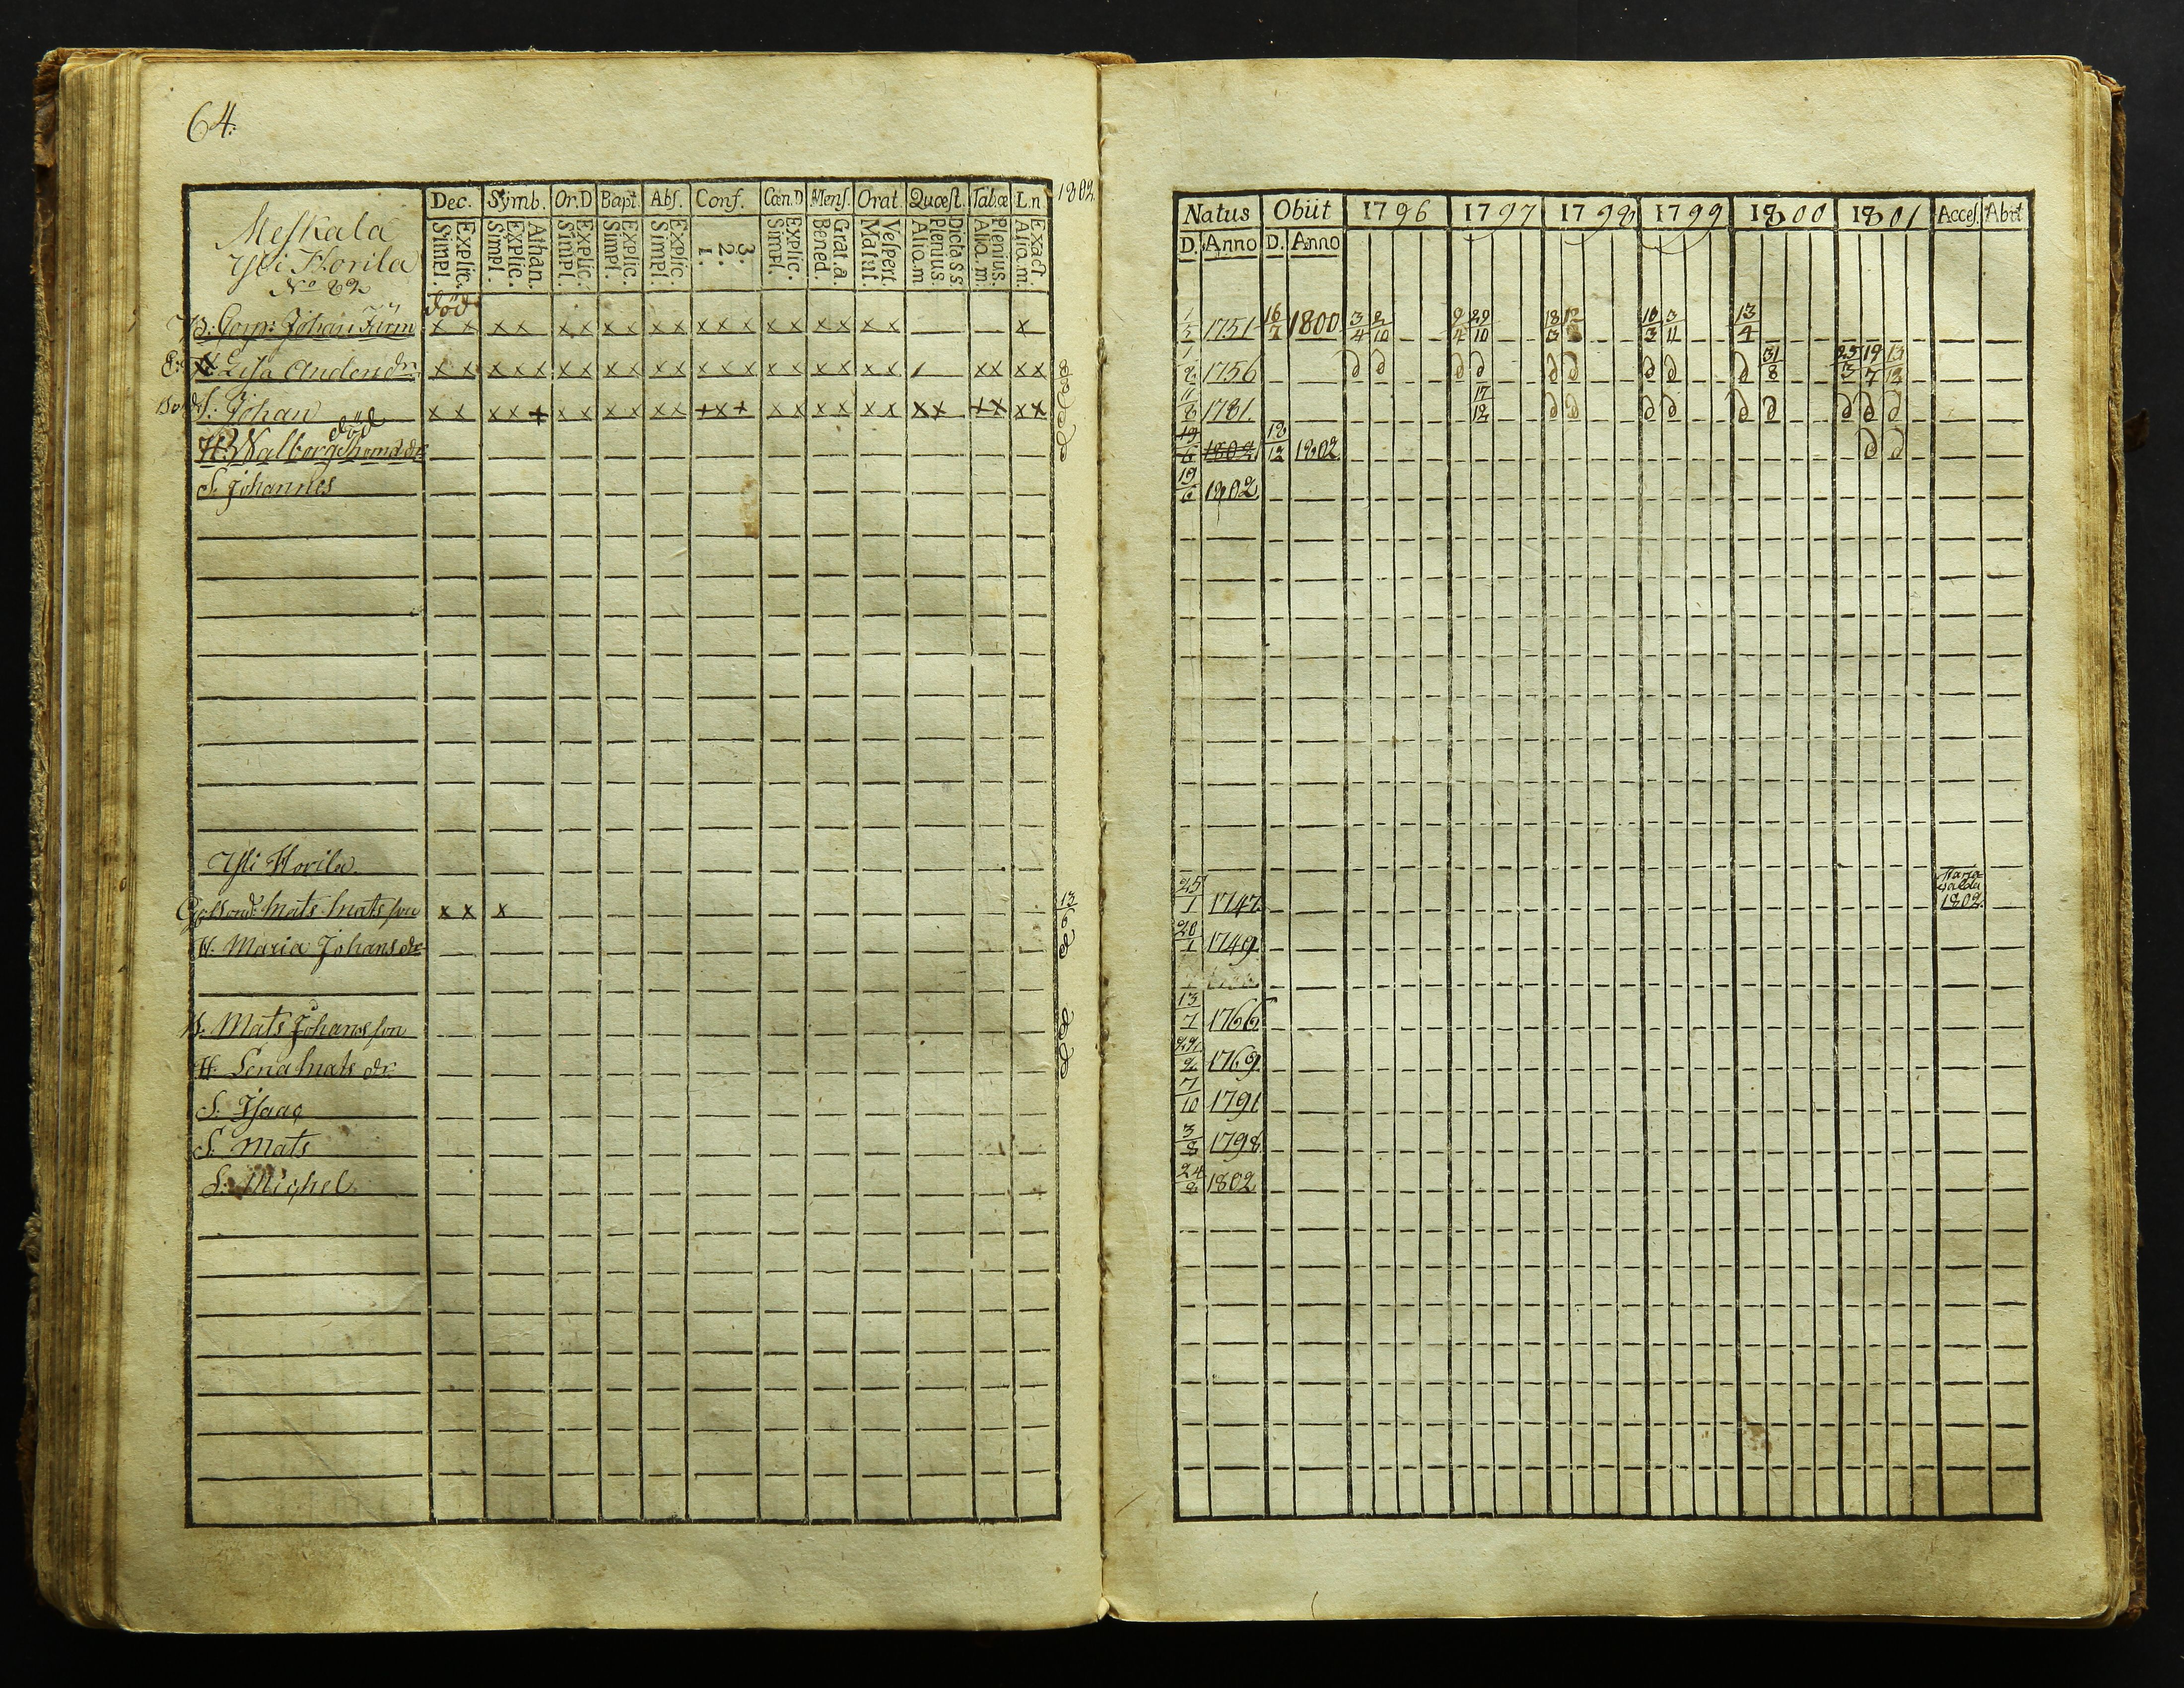 64.
Meskala
Yli Horila
No 82
Dec. Symb. Or.D Bapt. Abs. Conf. Cœn.D Mens. Orat. Quæst. Tabæ L.n 1802
Explic. Simpl. Athan. Explic. Simpl. Explic. Simpl. Explic. Simpl. Explic. Simpl. 3. 2. 1. Explic. Simpl. Grat.a. Bened. Vespert. Matut. Dicta S S Plenius. Alio.m Plenius. Alio.m. Exact. Alio.m.
Natus Obiit 1796 1797 1798 1799 1800 1801 Access. Abiit
D. Anno D. Anno
död
Corp: Johan x x x x x x x x x x x x x x x x x x x x x
1/5 1751 16/7 1800 3/4 2/10 9/4 29/10 18/3 10/3 3/11 13/4
Lisa Anders dr x x x x x x x x x x x x x x x x x x x x x x x x
1756 31/8 25/3 19/7 13/12
S. Johan x x x x + x x x x x x + x + x x x x x x x x + x x x
1781 17/12
död
H. Valborg
19/6 1802 12/12 1802
S. Johannes
19/6 1802
Yli Horila
Bond. Mats Matsson x x x 13
25/1 1747 1802
H. Maria Johans dr
20/1 1749
Mats Johansson
13/7 1766
H. Lena Mats dr
1769
S. Isaac
7/10 1791
S. Mats
3/8 1798
S. Mighel
24/8 1802